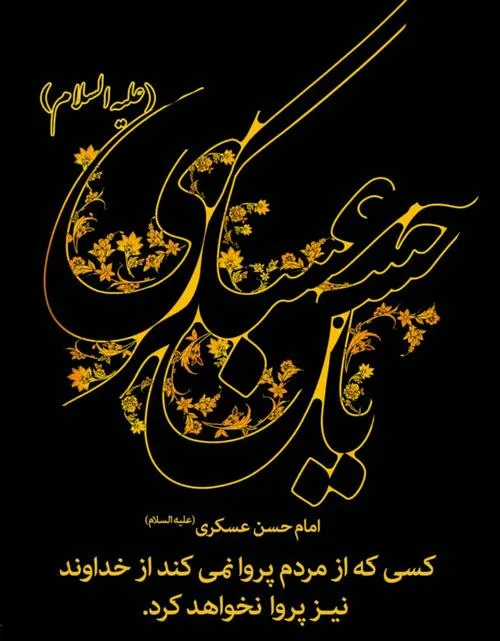 (علیه السلام)
یا حسن بن علی عسکری
امام حسن عسکری (علیه السلام)
کسی که از مردم پروا نمی کند از خداوند
نیز پروا نخواهد کرد.